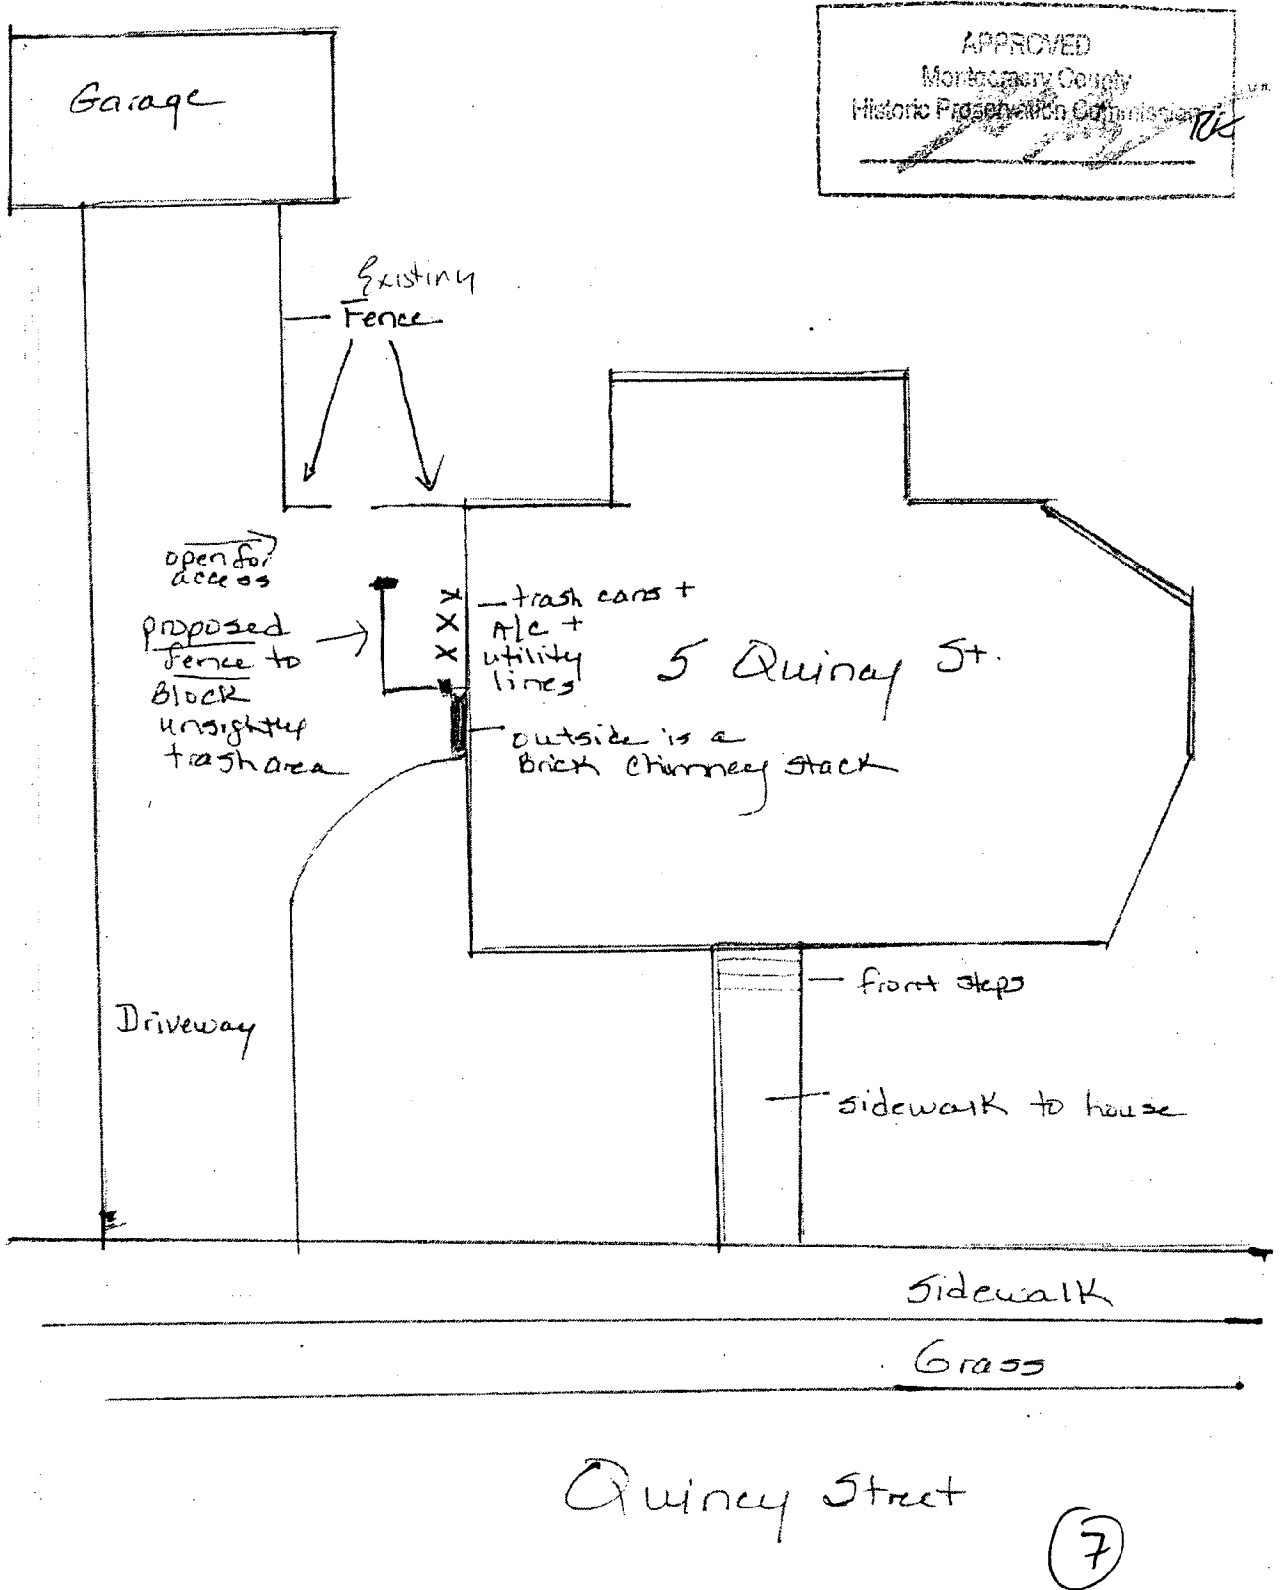 Garage
APPROVED
Montgomery County
Historic Preservation Commission
RK
Existing
Fence
open for
access
proposed
fence to
Block
unsightly
trash area
trash cans +
A/C +
utility
lines
5 Quincy St.
outside is a
Brick Chimney stack
front steps
Driveway
sidewalk to house
Sidewalk
Grass
Quincy Street
7